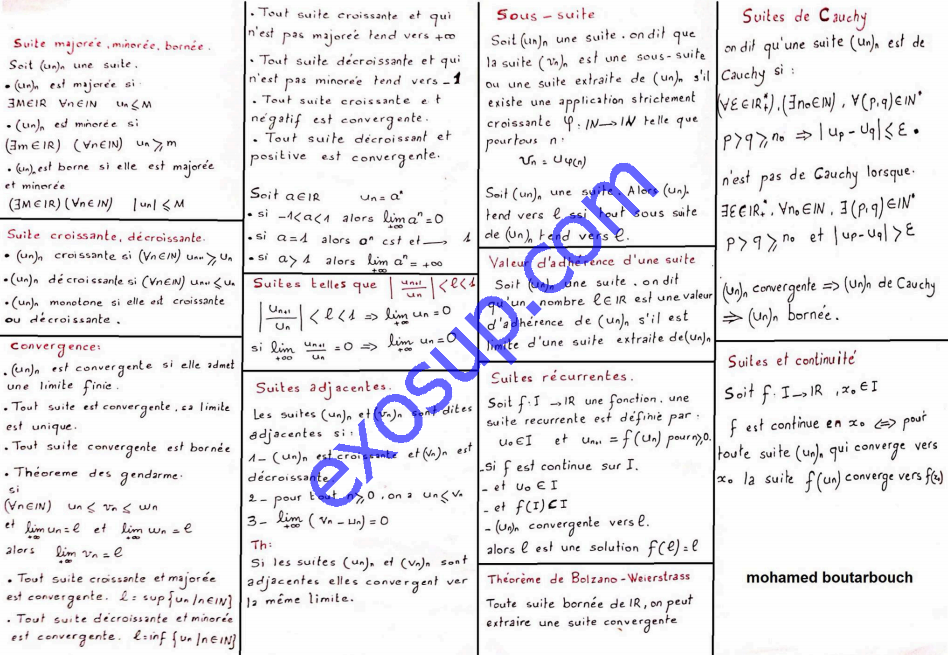 Suite majorée, minorée, bornée.
Soit (Un)n une suite.
• (Un)n est majorée si
∃M∈IR ∀n∈IN Un ≤ M
• (Un)n est minorée si
(∃m∈IR) (∀n∈IN) Un ≥ m
• (Un)n est borne si elle est majorée
et minorée
(∃M∈IR)(∀n∈IN) |Un| ≤ M
Suite croissante, décroissante.
• (Un)n croissante si (∀n∈IN) Un+1 ≥ Un
• (Un)n décroissante si (∀n∈IN) Un+1 ≤ Un
• (Un)n monotone si elle est croissante
ou décroissante.
Convergence:
• (Un)n est convergente si elle admet
une limite finie.
• Tout suite est convergente, sa limite
est unique.
• Tout suite convergente est bornée
• Théoreme des gendarme:
si
(∀n∈IN) Un ≤ Vn ≤ Wn
et lim Un = ℓ et lim Wn = ℓ
+∞ +∞
alors lim Vn = ℓ
+∞
• Tout suite croissante et majorée
est convergente. ℓ = sup{Un/n∈IN}
• Tout suite décroissante et minorée
est convergente. ℓ=inf {Un/n∈IN}
• Tout suite croissante et qui
n'est pas majorée tend vers +∞
• Tout suite décroissante et qui
n'est pas minorée tend vers -1
• Tout suite croissante et
négatif est convergente.
• Tout suite décroissant et
positive est convergente.
Soit a∈IR Un = aⁿ
• si -1<a<1 alors lim aⁿ = 0
+∞
• si a = 1 alors aⁿ cst et → 1
• si a > 1 alors lim aⁿ = +∞
+∞
Suites telles que |Un+1/Un| < ℓ < 1
|Un+1/Un| < ℓ < 1 ⇒ lim Un = 0
+∞
si lim Un+1/Un = 0 ⇒ lim Un = 0
+∞ +∞
Suites adjacentes.
Les suites (Un)n et (Vn)n sont dites
adjacentes si:
1- (Un)n est croissante et (Vn)n est
décroissante
2- pour tout n≥0, on a Un ≤ Vn
3- lim (Vn - Un) = 0
+∞
Th:
Si les suites (Un)n et (Vn)n sont
adjacentes elles convergent ver
la même limite.
Sous-suite
Soit (Un)n une suite. on dit que
la suite (Vn)n est une sous-suite
ou une suite extraite de (Un)n s'il
existe une application strictement
croissante φ: IN → IN telle que
pour tous n:
Vn = Uφ(n)
Soit (Un)n une suite. Alors (Un)n
tend vers ℓ ssi tout sous suite
de (Un)n tend vers ℓ.
Valeur d'adhérence d'une suite
Soit (Un)n une suite. on dit
qu'un nombre ℓ∈IR est une valeur
d'adhérence de (Un)n s'il est
limite d'une suite extraite de (Un)n
Suites récurrentes.
Soit f: I → IR une fonction, une
suite recurrente est définie par:
U0∈I et Un+1 = f(Un) pour n≥0.
- Si f est continue sur I.
- et U0 ∈ I
- et f(I)⊂I
- (Un)n convergente vers ℓ.
alors ℓ est une solution f(ℓ)=ℓ
Théorème de Bolzano-Weierstrass
Toute suite bornée de IR, on peut
extraire une suite convergente
Suites de Cauchy
on dit qu'une suite (Un)n est de
Cauchy si:
(∀ε∈IR*+), (∃n0∈IN), ∀(p,q)∈IN*
p>q≥n0 ⇒ |Up-Uq| ≤ ε.
n'est pas de Cauchy lorsque.
∃ε∈IR*+, ∀n0∈IN, ∃(p,q)∈IN*
p>q≥n0 et |Up-Uq|>ε
(Un)n convergente ⇒ (Un)n de Cauchy
⇒ (Un)n bornée.
Suites et continuité
Soit f: I→IR, x0∈I
f est continue en x0 ⇔ pour
toute suite (Un)n qui converge vers
x0 la suite f(Un) converge vers f(x0)
mohamed boutarbouch
exosup.com